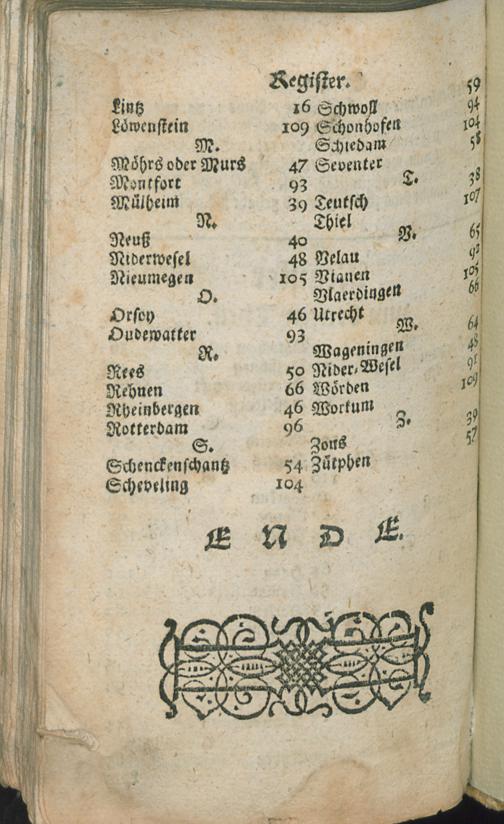 Register.
Lintz 16
Löwenstein 109
M.
Möhrs oder Murs 47
Montfort 93
Mülheim 39
N.
Neuß 40
Niderwesel 48
Nieumegen 105
O.
Orsoy 46
Oudewatter 93
R.
Rees 50
Rehnen 66
Rheinbergen 46
Rotterdam 96
S.
Schenckenschantz 54
Scheveling 104
Schwoll 59
Schonhofen 94
Schiedam 104
Seventer 58
T.
Teutsch 38
Thiel 107
V.
Velau 65
Vianen 92
Vlaerdingen 105
Utrecht 66
W.
Wageningen 64
Nider-Wesel 48
Wörden 91
Workum 109
Z.
Zons 39
Zütphen 57
E N D E.